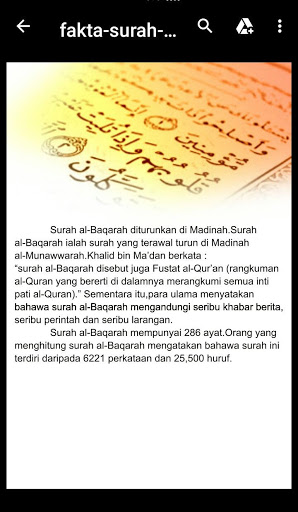 fakta-surah-...
Surah al-Baqarah diturunkan di Madinah.Surah
al-Baqarah ialah surah yang terawal turun di Madinah
al-Munawwarah.Khalid bin Ma'dan berkata :
“surah al-Baqarah disebut juga Fustat al-Qur'an (rangkuman
al-Quran yang bererti di dalamnya merangkumi semua inti
pati al-Quran).” Sementara itu,para ulama menyatakan
bahawa surah al-Baqarah mengandungi seribu khabar berita,
seribu perintah dan seribu larangan.
Surah al-Baqarah mempunyai 286 ayat.Orang yang
menghitung surah al-Baqarah mengatakan bahawa surah ini
terdiri daripada 6221 perkataan dan 25,500 huruf.